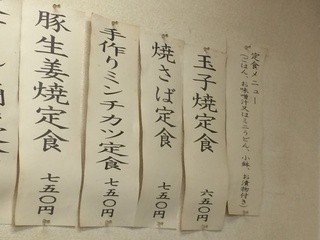 定食メニュー
(ごはん、お味噌汁又はミニうどん、小鉢、お漬物付き)
玉子焼定食 六五〇円
焼さば定食 七五〇円
手作りミンチカツ定食 七五〇円
豚生姜焼定食 七五〇円